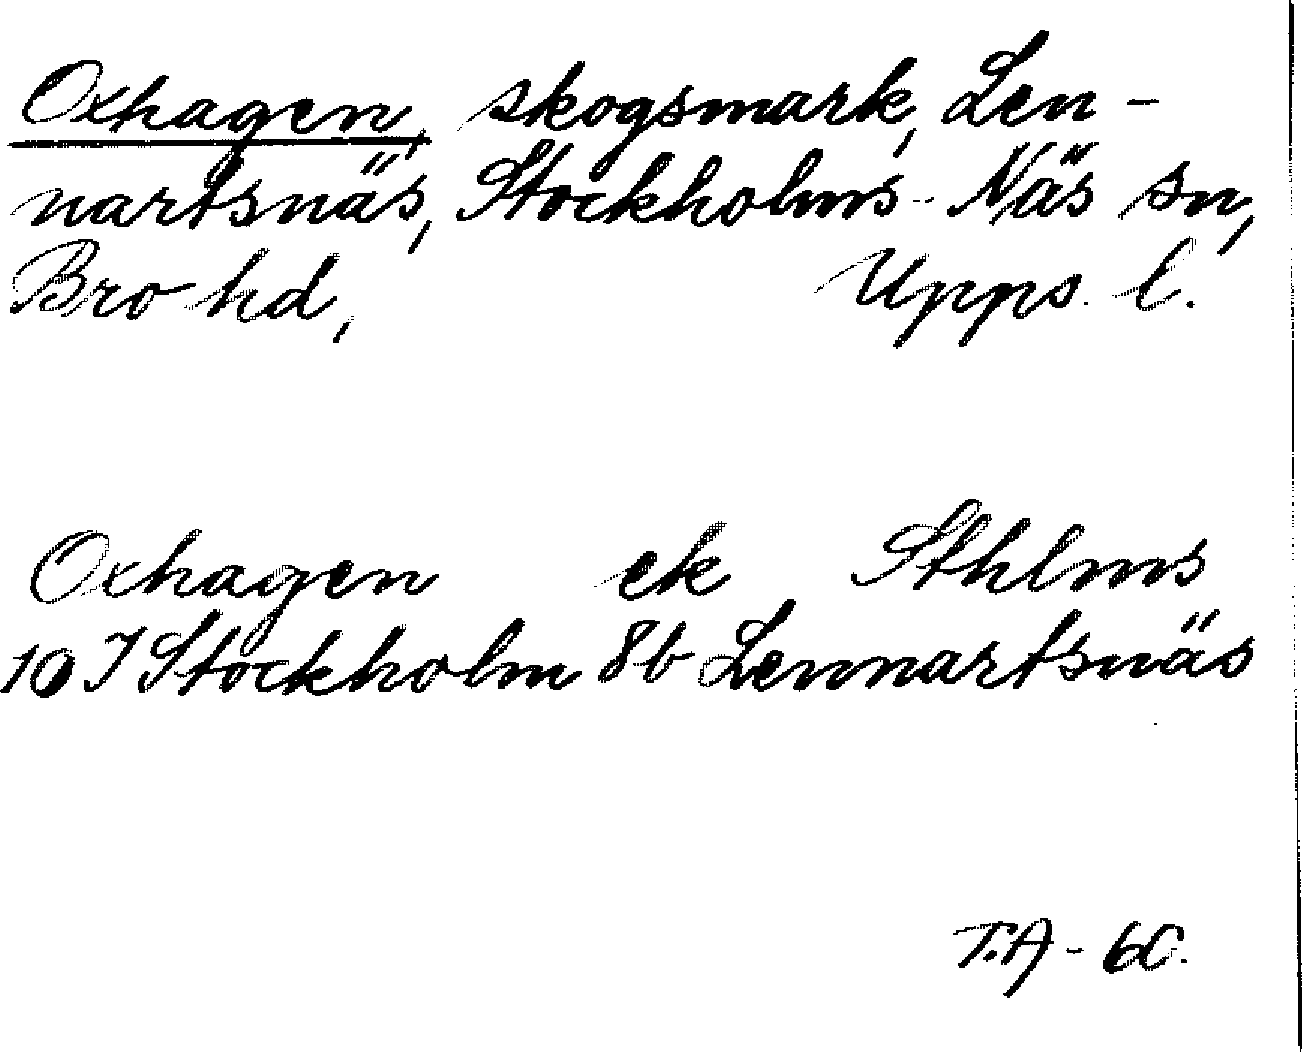 Oxhagen, skogsmark, Len-
nartsnäs, Stockholms-Näs sn,
Bro hd, Upps. l.
Oxhagen ek Sthlms
10 I Stockholm 8b Lennartsnäs
T.A - 60.